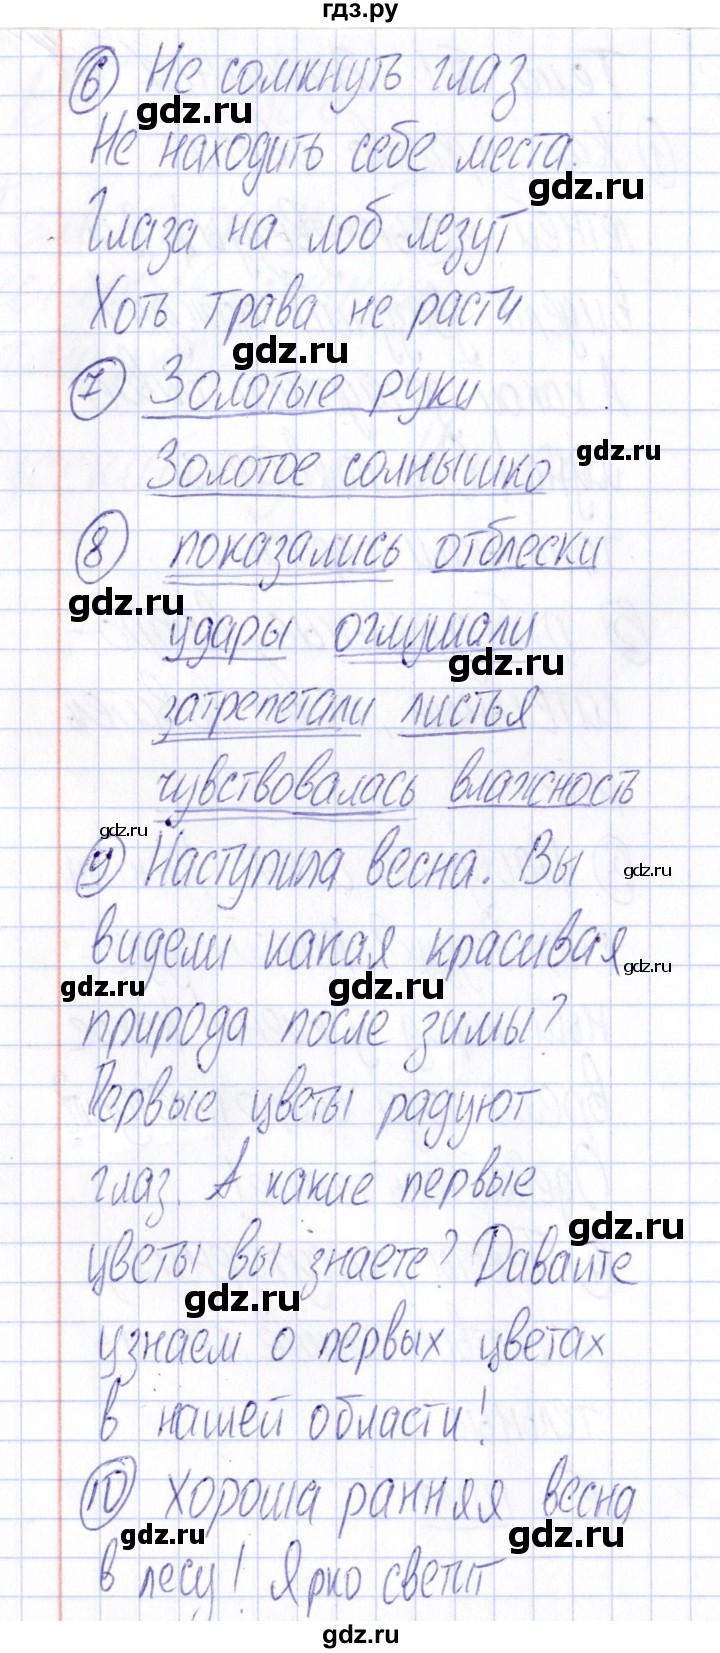 гдз.ру
6 Не сомкнуть глаз
gdz.ru
Не находить себе места.
gdz.ru
Глаза на лоб лезут
Хоть трава не расти
gdz.ru
7 Золотые руки
gdz.ru
Золотое солнышко
8 показались отблески
gdz.ru
удары оглушали
gdz.ru
затрепетали листья
чувствовалась влажность
gdz.ru
9 Наступила весна. Вы
gdz.ru
видели какая красивая
gdz.ru
gdz.ru
gdz.ru
природа после зимы?
Первые цветы радуют
глаз. А какие первые
gdz.ru
цветы вы знаете? Давайте
gdz.ru
узнаем о первых цветах
в нашей области!
10 хороша ранняя весна
gdz.ru
gdz.ru
в лесу! Ярко светит
gdz.ru